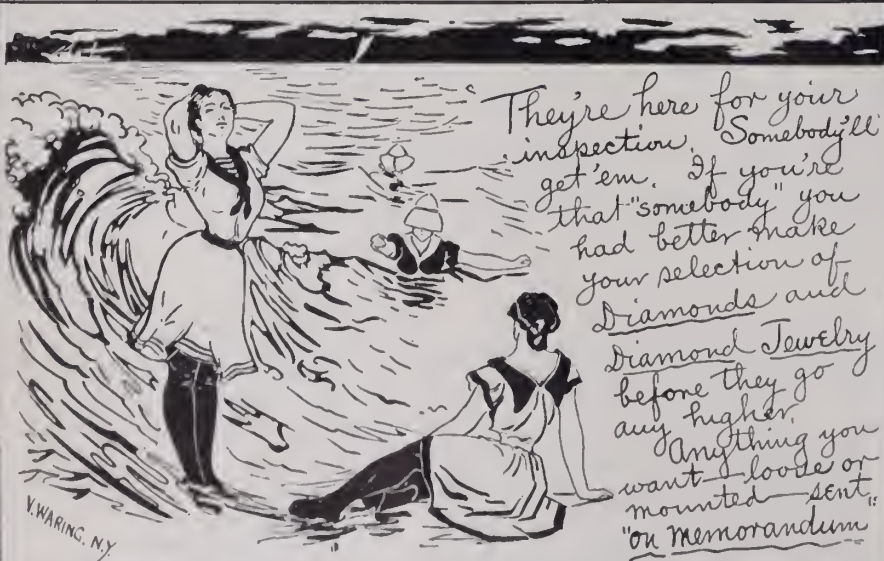 They're here for your
inspection. Somebody'll
get 'em. If you're
that "somebody" you
had better make
your selection of
Diamonds and
Diamond Jewelry
before they go
any higher.
Anything you
want—loose or
mounted—sent
"on Memorandum"
V. WARING. N.Y.